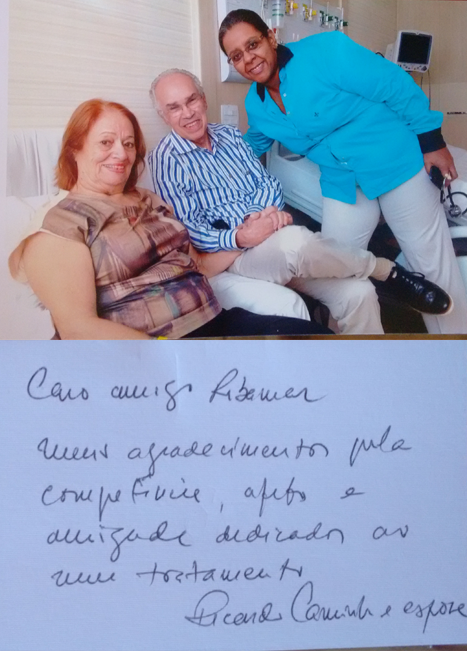 Caro amigo Ribamar
meus agradecimentos pela
competência, afeto e
amizade dedicados ao
meu tratamento
Ricardo Caminha e esposa